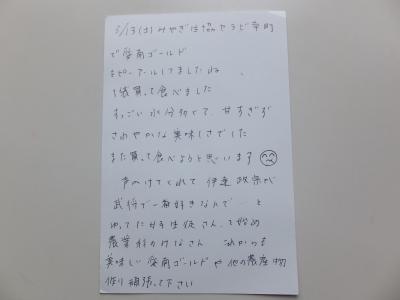 5/13(土)みやぎ生協セラビ幸町
で愛南ゴールド
をピーアールしてましたね
1袋買って食べました
すっごい水分かでて、甘すぎず
さわやかな美味しさでした
また買って食べようと思います
声かけてくれて 伊達政宗が
武将で一番好きなんで…と
ゆってた女子生徒さん、を始め
農業科のみなさん これからも
美味しい愛南ゴールドや他の農産物
作り頑張って下さい